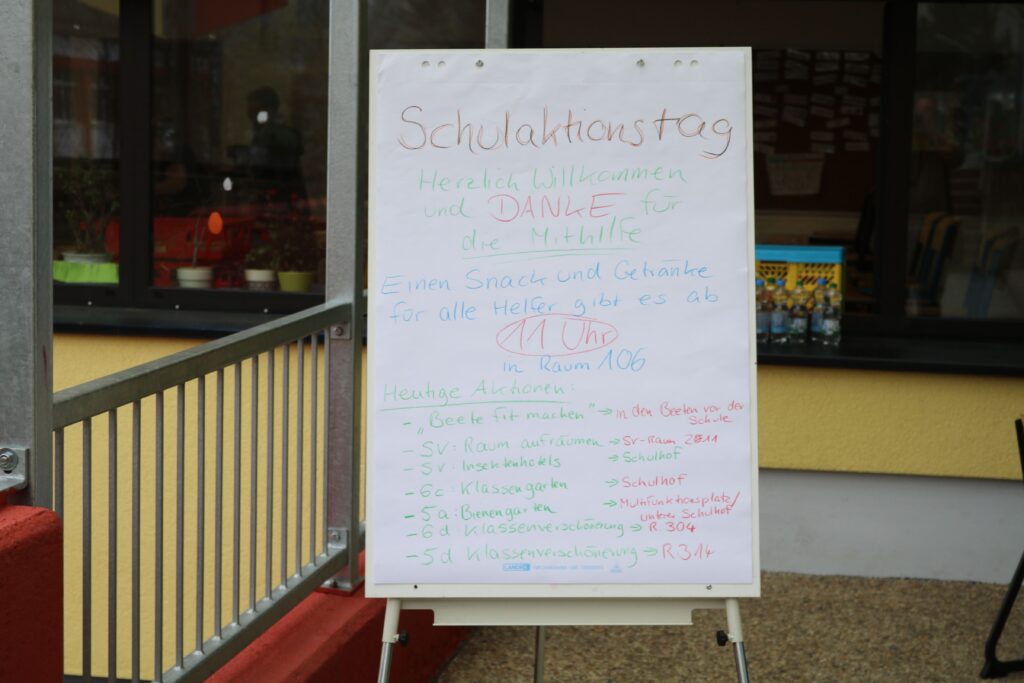 Schulaktionstag
Herzlich Willkommen
und DANKE für
die Mithilfe
Einen Snack und Getränke
für alle Helfer gibt es ab
11 Uhr
in Raum 106
Heutige Aktionen:
- „Beete fit machen" → in den Beeten vor der
Schule
- SV: Raum aufräumen → SV-Raum 2011
- SV: Insektenhotels → Schulhof
- 6c: Klassengarten → Schulhof
- 5a: Bienengarten → Multifunktionsplatz/
unterer Schulhof
- 6d: Klassenverschönerung → R. 304
- 5d Klassenverschönerung → R. 314